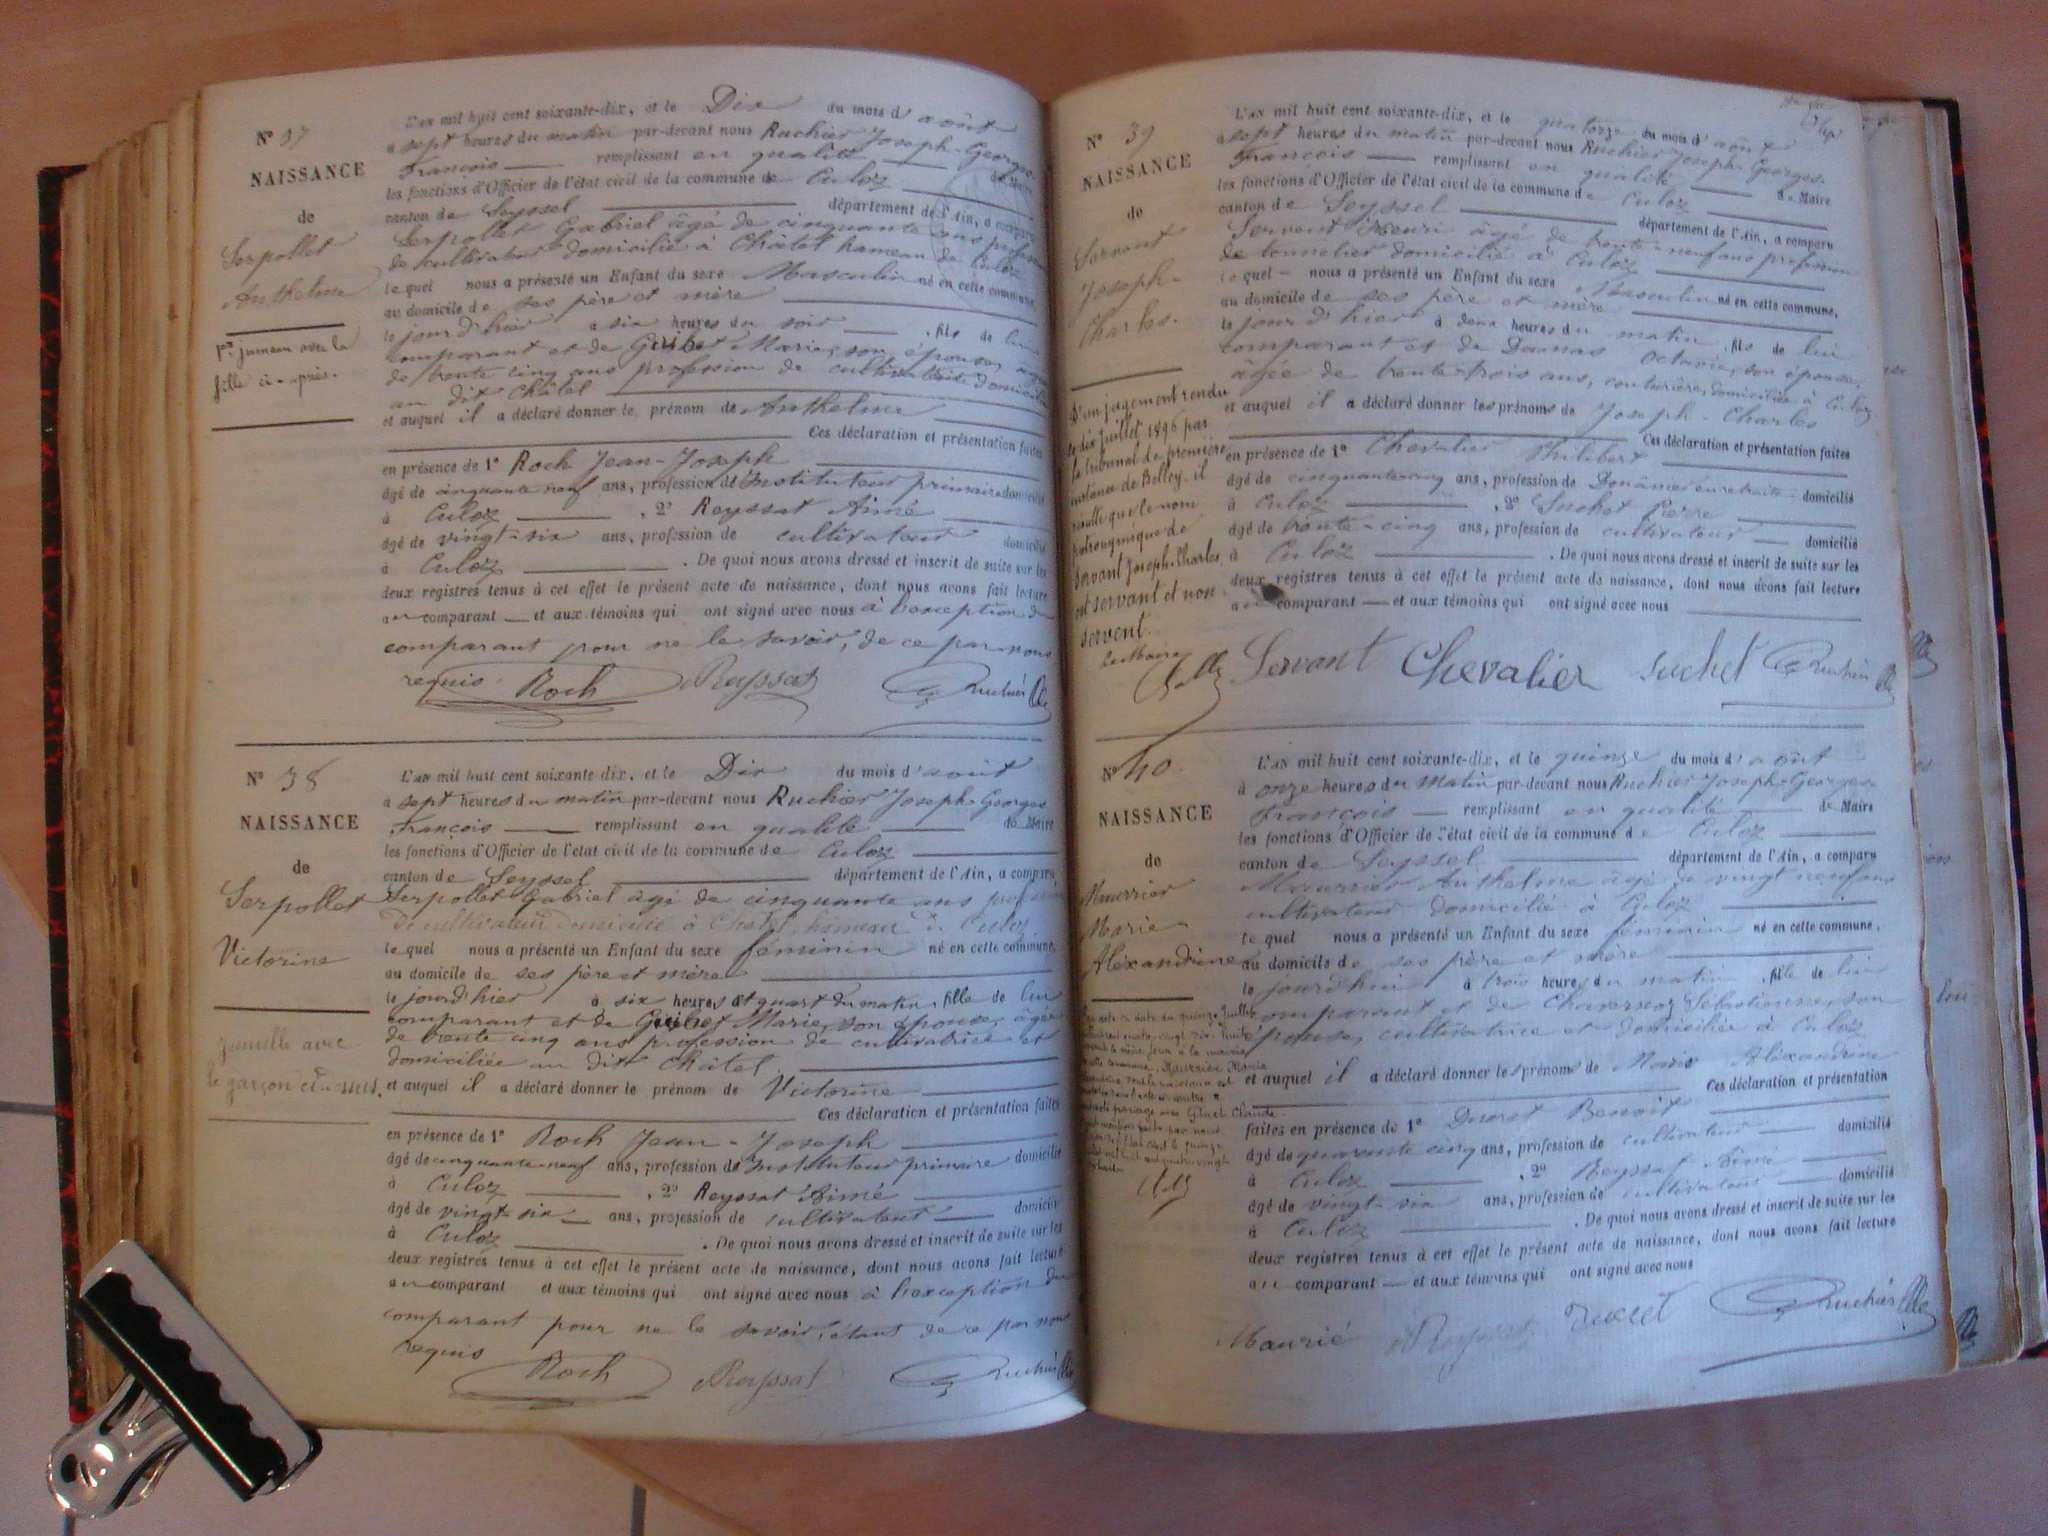 N° 37
NAISSANCE
de
Serpollet
Anthelme
1er jumeau avec la
fille ci-après.
L'an mil huit cent soixante-dix, et le Dix du mois d'août
à sept heures du matin par-devant nous Ruchier Joseph-Georges
François remplissant en qualité de Maire
les fonctions d'Officier de l'état civil de la commune de Culoz
canton de Seyssel département de l'Ain, a comparu
Serpollet Gabriel âgé de cinquante ans profession
de cultivateur domicilié à Châtel hameau de Culoz
lequel nous a présenté un Enfant du sexe Masculin né en cette commune,
au domicile de ses père et mère
le jour d'hier à six heures du soir, fils de lui
comparant et de Guibet Marie, son épouse, âgée
de trente cinq ans profession de cultivatrice domiciliée
au dit Châtel
et auquel il a déclaré donner le prénom de Anthelme
Ces déclaration et présentation faites
en présence de 1° Roch Jean-Joseph
âgé de cinquante neuf ans, profession de Instituteur primaire domicilié
à Culoz, 2° Reyssat Aimé
âgé de vingt-six ans, profession de cultivateur domicilié
à Culoz. De quoi nous avons dressé et inscrit de suite sur les
deux registres tenus à cet effet le présent acte de naissance, dont nous avons fait lecture
au comparant et aux témoins qui ont signé avec nous à l'exception du
comparant pour ne le savoir, de ce par nous
requis.
Roch Reyssat Ruchier
N° 38
NAISSANCE
de
Serpollet
Victorine
jumelle avec
le garçon ci-dessus.
L'an mil huit cent soixante-dix, et le Dix du mois d'août
à sept heures du matin par-devant nous Ruchier Joseph-Georges
François remplissant en qualité de Maire
les fonctions d'Officier de l'état civil de la commune de Culoz
canton de Seyssel département de l'Ain, a comparu
Serpollet Gabriel âgé de cinquante ans profession
de cultivateur domicilié à Châtel hameau de Culoz
lequel nous a présenté un Enfant du sexe féminin né en cette commune,
au domicile de ses père et mère
le jour d'hier à six heures et quart du matin, fille de lui
comparant et de Guibet Marie, son épouse, âgée
de trente cinq ans profession de cultivatrice et
domiciliée au dit Châtel
et auquel il a déclaré donner le prénom de Victorine
Ces déclaration et présentation faites
en présence de 1° Roch Jean-Joseph
âgé de cinquante-neuf ans, profession de Instituteur primaire domicilié
à Culoz, 2° Reyssat Aimé
âgé de vingt-six ans, profession de cultivateur domicilié
à Culoz. De quoi nous avons dressé et inscrit de suite sur les
deux registres tenus à cet effet le présent acte de naissance, dont nous avons fait lecture
au comparant et aux témoins qui ont signé avec nous à l'exception du
comparant pour ne le savoir, étant de ce par nous
requis
Roch Reyssat Ruchier
N° 39
NAISSANCE
de
Servant
Joseph-
Charles.
D'un jugement rendu
le dix juillet 1896 par
le tribunal de première
instance de Belley, il
résulte que le nom
patronymique de
Servant Joseph-Charles,
est servant et non
servent.
Le Maire
L'an mil huit cent soixante-dix, et le quatorze du mois d'août
à sept heures du matin par-devant nous Ruchier Joseph-Georges-
François remplissant en qualité de Maire
les fonctions d'Officier de l'état civil de la commune de Culoz
canton de Seyssel département de l'Ain, a comparu
Servent Henri âgé de trente-neuf ans profession
de tonnelier domicilié à Culoz
lequel nous a présenté un Enfant du sexe Masculin né en cette commune,
au domicile de ses père et mère
le jour d'hier à deux heures du matin, fils de lui
comparant et de Damas Octavie, son épouse,
âgée de trente-trois ans, couturière, domiciliée à Culoz
et auquel il a déclaré donner les prénoms de Joseph-Charles
Ces déclaration et présentation faites
en présence de 1° Chevalier Philibert
âgé de cinquante-cinq ans, profession de Douanier en retraite domicilié
à Culoz, 2° Suchet Pierre
âgé de trente-cinq ans, profession de cultivateur domicilié
à Culoz. De quoi nous avons dressé et inscrit de suite sur les
deux registres tenus à cet effet le présent acte de naissance, dont nous avons fait lecture
au comparant et aux témoins qui ont signé avec nous
Servant Chevalier Suchet Ruchier
N° 40.
NAISSANCE
de
Maurrier
Marie
Alexandrine
L'an mil huit cent soixante-dix, et le quinze du mois d'août
à onze heures du matin par-devant nous Ruchier Joseph-Georges
François remplissant en qualité de Maire
les fonctions d'Officier de l'état civil de la commune de Culoz
canton de Seyssel département de l'Ain, a comparu
Maurrier Anthelme âgé de vingt neuf ans
cultivateur domicilié à Culoz
lequel nous a présenté un Enfant du sexe féminin né en cette commune,
au domicile de ses père et mère
le jourd'hui à trois heures du matin, fille de lui
comparant et de Sébastienne, son
épouse, cultivatrice et domiciliée à Culoz
et auquel il a déclaré donner les prénoms de Marie Alexandrine
Ces déclaration et présentation
faites en présence de 1° Ducret Benoît
âgé de quarante cinq ans, profession de cultivateur domicilié
à Culoz, 2° Reyssat Aimé
âgé de vingt-six ans, profession de cultivateur domicilié
à Culoz. De quoi nous avons dressé et inscrit de suite sur les
deux registres tenus à cet effet le présent acte de naissance, dont nous avons fait lecture
au comparant et aux témoins qui ont signé avec nous
Maurié Reyssat Ducret Ruchier